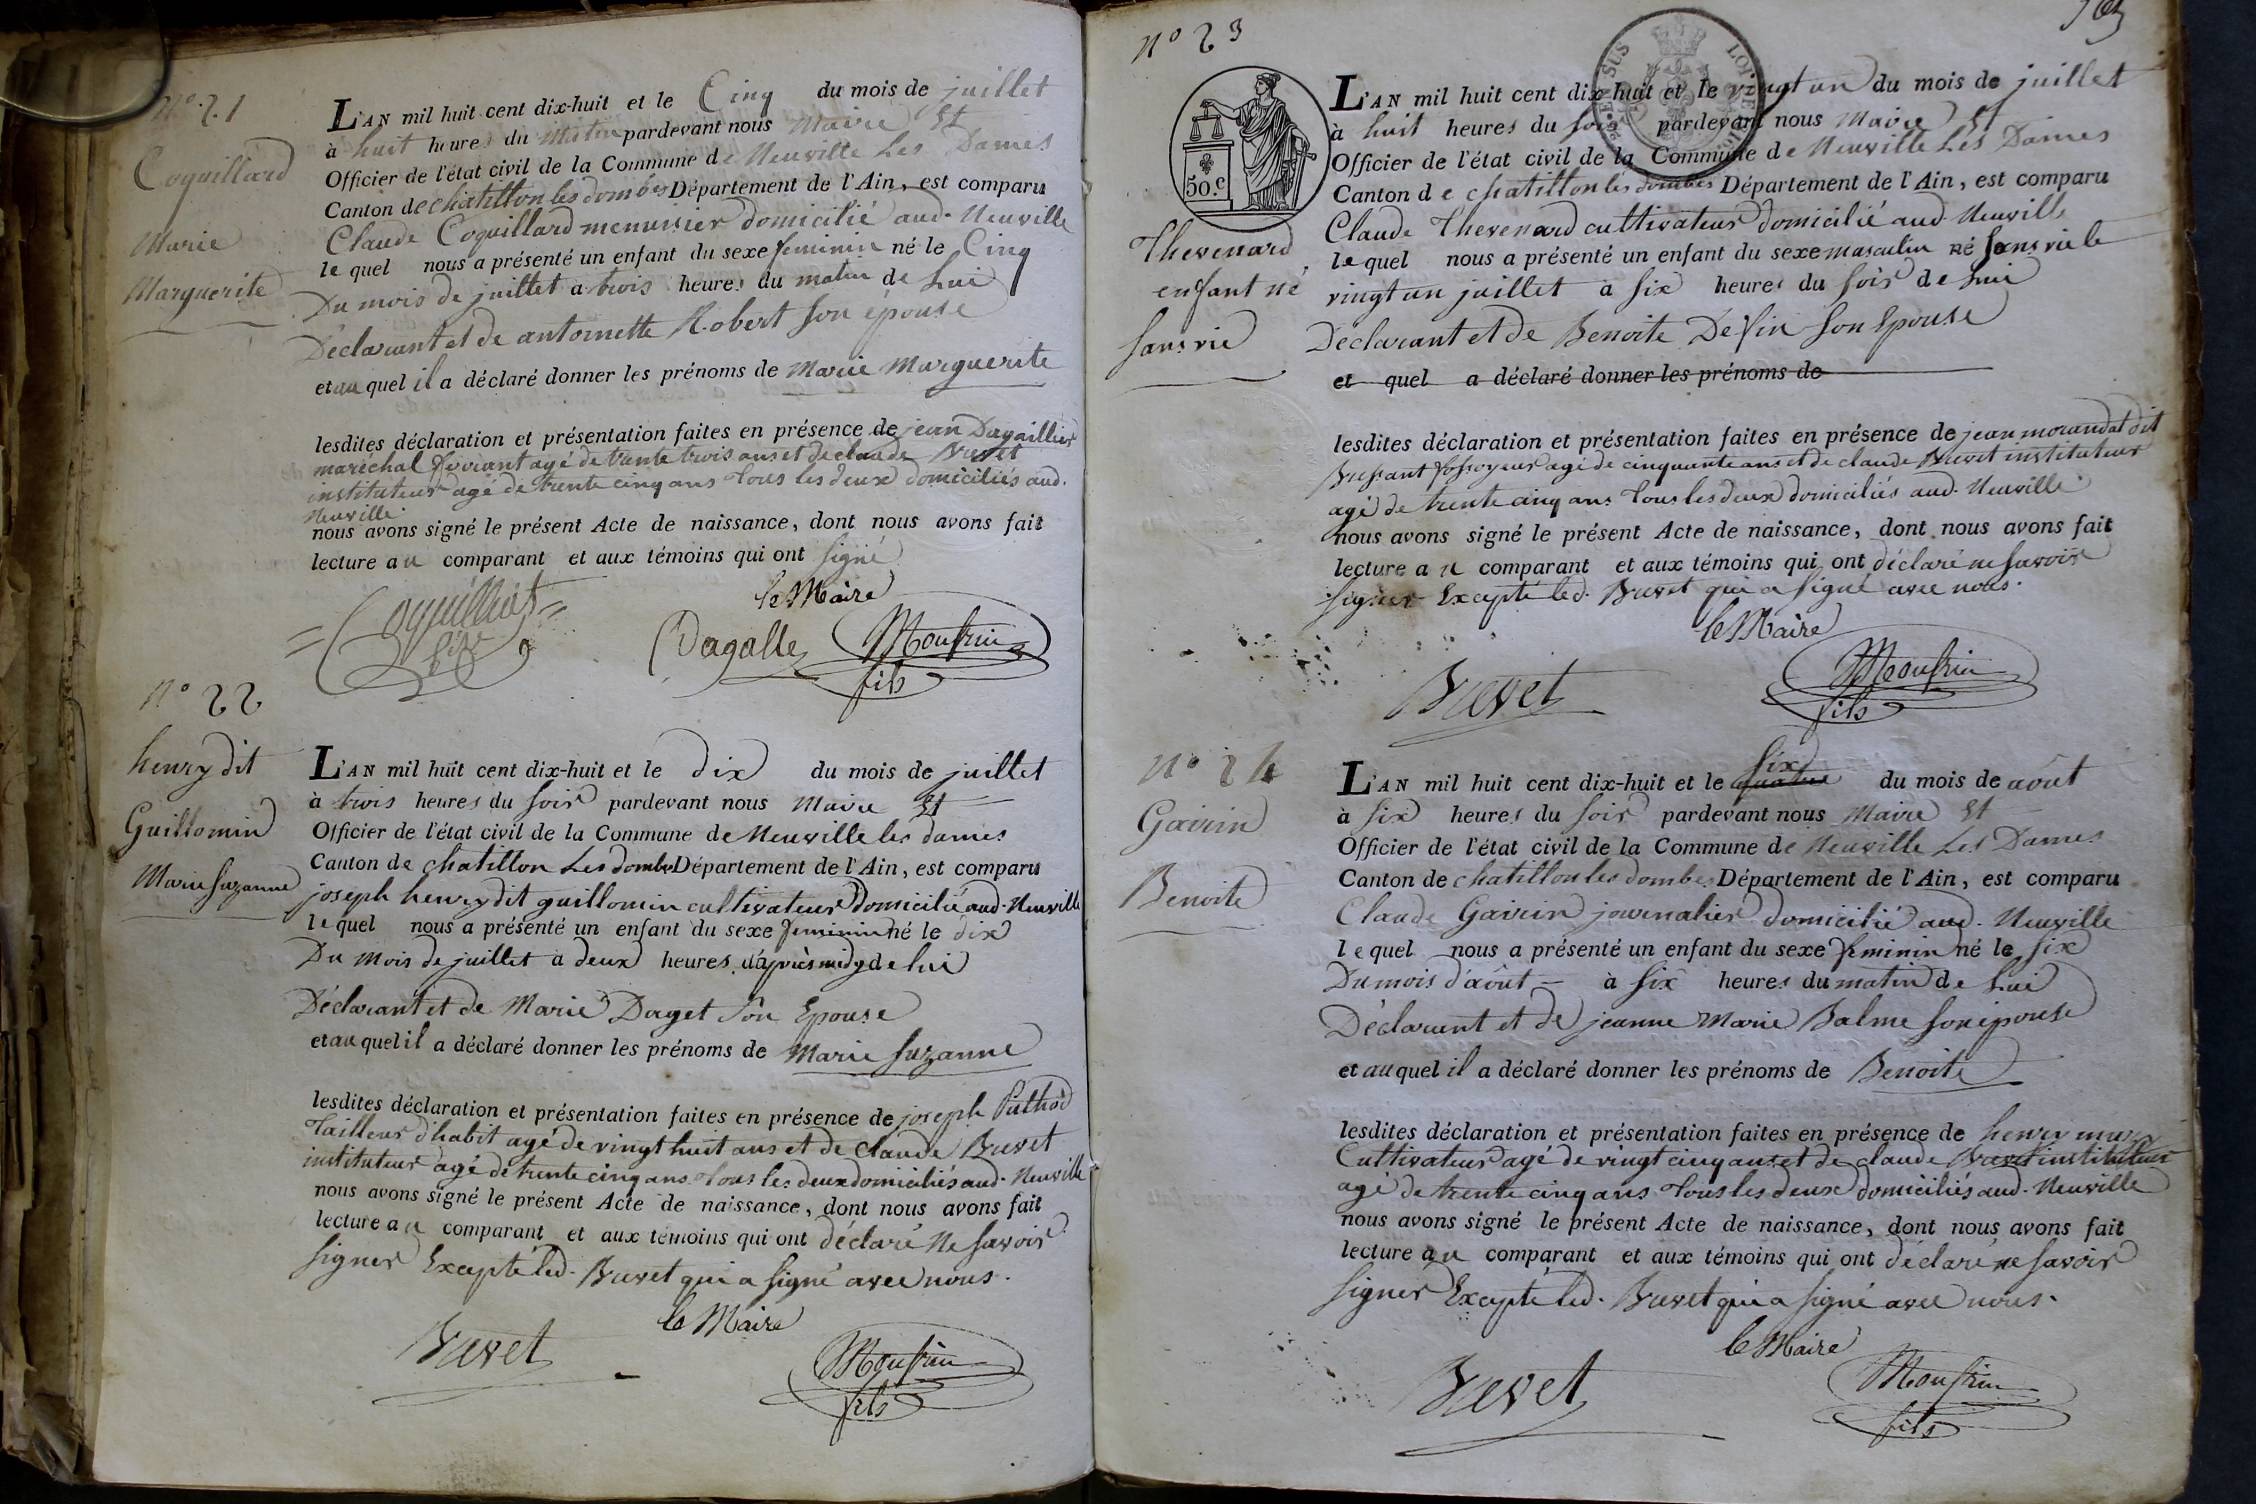 N° 21
Coquillard
Marie
Marguerite
L'AN mil huit cent dix-huit et le Cinq du mois de juillet
à huit heures du matin pardevant nous Maire Et
Officier de l'état civil de la Commune de Neuville Les Dames
Canton de chatillon les dombes Département de l'Ain, est comparu
Claude Coquillard menuisier domicilié aud. Neuville
le quel nous a présenté un enfant du sexe feminin né le Cinq
Du mois de juillet a trois heures du matin de Lui
Déclarant et de antoinette Robert Son épouse
et au quel il a déclaré donner les prénoms de Marie Marguerite
lesdites déclaration et présentation faites en présence de jean Dagaillier
maréchal ferrant agé de trente trois ans et de claude Buvet
instituteur agé de trente cinq ans Tous les deux domiciliés aud.
Neuville.
nous avons signé le présent Acte de naissance, dont nous avons fait
lecture au comparant et aux témoins qui ont signé
le Maire
Dagalle Monfrin
fils
N° 22
henry dit
Guillomin
Marie Suzanne
L'AN mil huit cent dix-huit et le dix du mois de juillet
à trois heures du soir pardevant nous Maire Et
Officier de l'état civil de la Commune de Neuville les dames
Canton de chatillon Les dombes Département de l'Ain, est comparu
joseph henry dit guillomin cultivateur domicilié aud. Neuville
le quel nous a présenté un enfant du sexe feminin né le dix
Du Mois de juillet a deux heures d'après midy de lui
Déclarant et de Marie Daget Son Epouse
et au quel il a déclaré donner les prénoms de Marie Suzanne
lesdites déclaration et présentation faites en présence de joseph Puthod
Tailleur d'habit agé de vingt huit ans et de Claude Buvet
instituteur agé de trente cinq ans Tous les deux domiciliés aud. Neuville
nous avons signé le présent Acte de naissance, dont nous avons fait
lecture au comparant et aux témoins qui ont déclaré Ne Savoir
Signer Excepté led. Buvet qui a signé avec nous.
le Maire
Buvet Monfrin
fils
N° 23
50.c
Thevenard
enfant né
Sans vie
L'AN mil huit cent dix-huit et le vingt un du mois de juillet
à huit heures du soir pardevant nous Maire Et
Officier de l'état civil de la Commune de Neuville Les Dames
Canton de chatillon les dombes Département de l'Ain, est comparu
Claude Thevenard cultivateur domicilié aud. Neuville
le quel nous a présenté un enfant du sexe masculin né Sans vie le
vingt un juillet à Six heures du soir de Lui
Déclarant et de Benoite Defin Son Epouse
et quel a déclaré donner les prénoms de
lesdites déclaration et présentation faites en présence de jean morandat dit
Bressant fossoyeur agé de cinquante ans et de claude Buvet instituteur
agé de trente cinq ans Tous les deux domiciliés aud. Neuville.
nous avons signé le présent Acte de naissance, dont nous avons fait
lecture au comparant et aux témoins qui ont déclaré ne Savoir
Signer Excepté led. Buvet qui a Signé avec nous.
le Maire
Buvet Monfrin
fils
N° 24
Gavrin
Benoite
L'AN mil huit cent dix-huit et le quatre Six du mois de août
à Six heures du soir pardevant nous Maire Et
Officier de l'état civil de la Commune de Neuville Les Dames
Canton de chatillon les dombes Département de l'Ain, est comparu
Claude Gavrin journalier domicilié aud. Neuville
le quel nous a présenté un enfant du sexe feminin né le Six
Du mois d'août à Six heures du matin de Lui
Déclarant et de jeanne Marie Balme Son épouse
et au quel il a déclaré donner les prénoms de Benoite
lesdites déclaration et présentation faites en présence de henry
Cultivateur agé de vingt cinq ans et de claude Buvet instituteur
agé de trente cinq ans Tous les deux domiciliés aud. Neuville
nous avons signé le présent Acte de naissance, dont nous avons fait
lecture au comparant et aux témoins qui ont déclaré ne Savoir
Signer Excepté led. Buvet qui a signé avec nous.
le Maire
Buvet Monfrin
fils